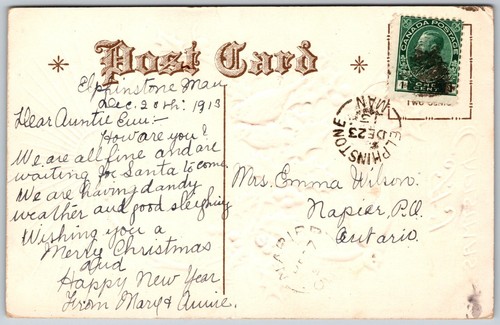 Post Card
Elphinstone Man
Dec. 20th: 1913
Dear Auntie Em:-
How are you?
We are all fine and are
waiting for Santa to come.
We are having dandy
weather and good sleighing
Wishing you a
Merry Christmas
and
Happy New Year
From Mary & Annie.
CANADA POSTAGE
1 CENT
ELPHINSTONE
DE 23
13
MAN
Mrs. Emma Wilson.
Napier, P.O.
Ontario.
NAPIER